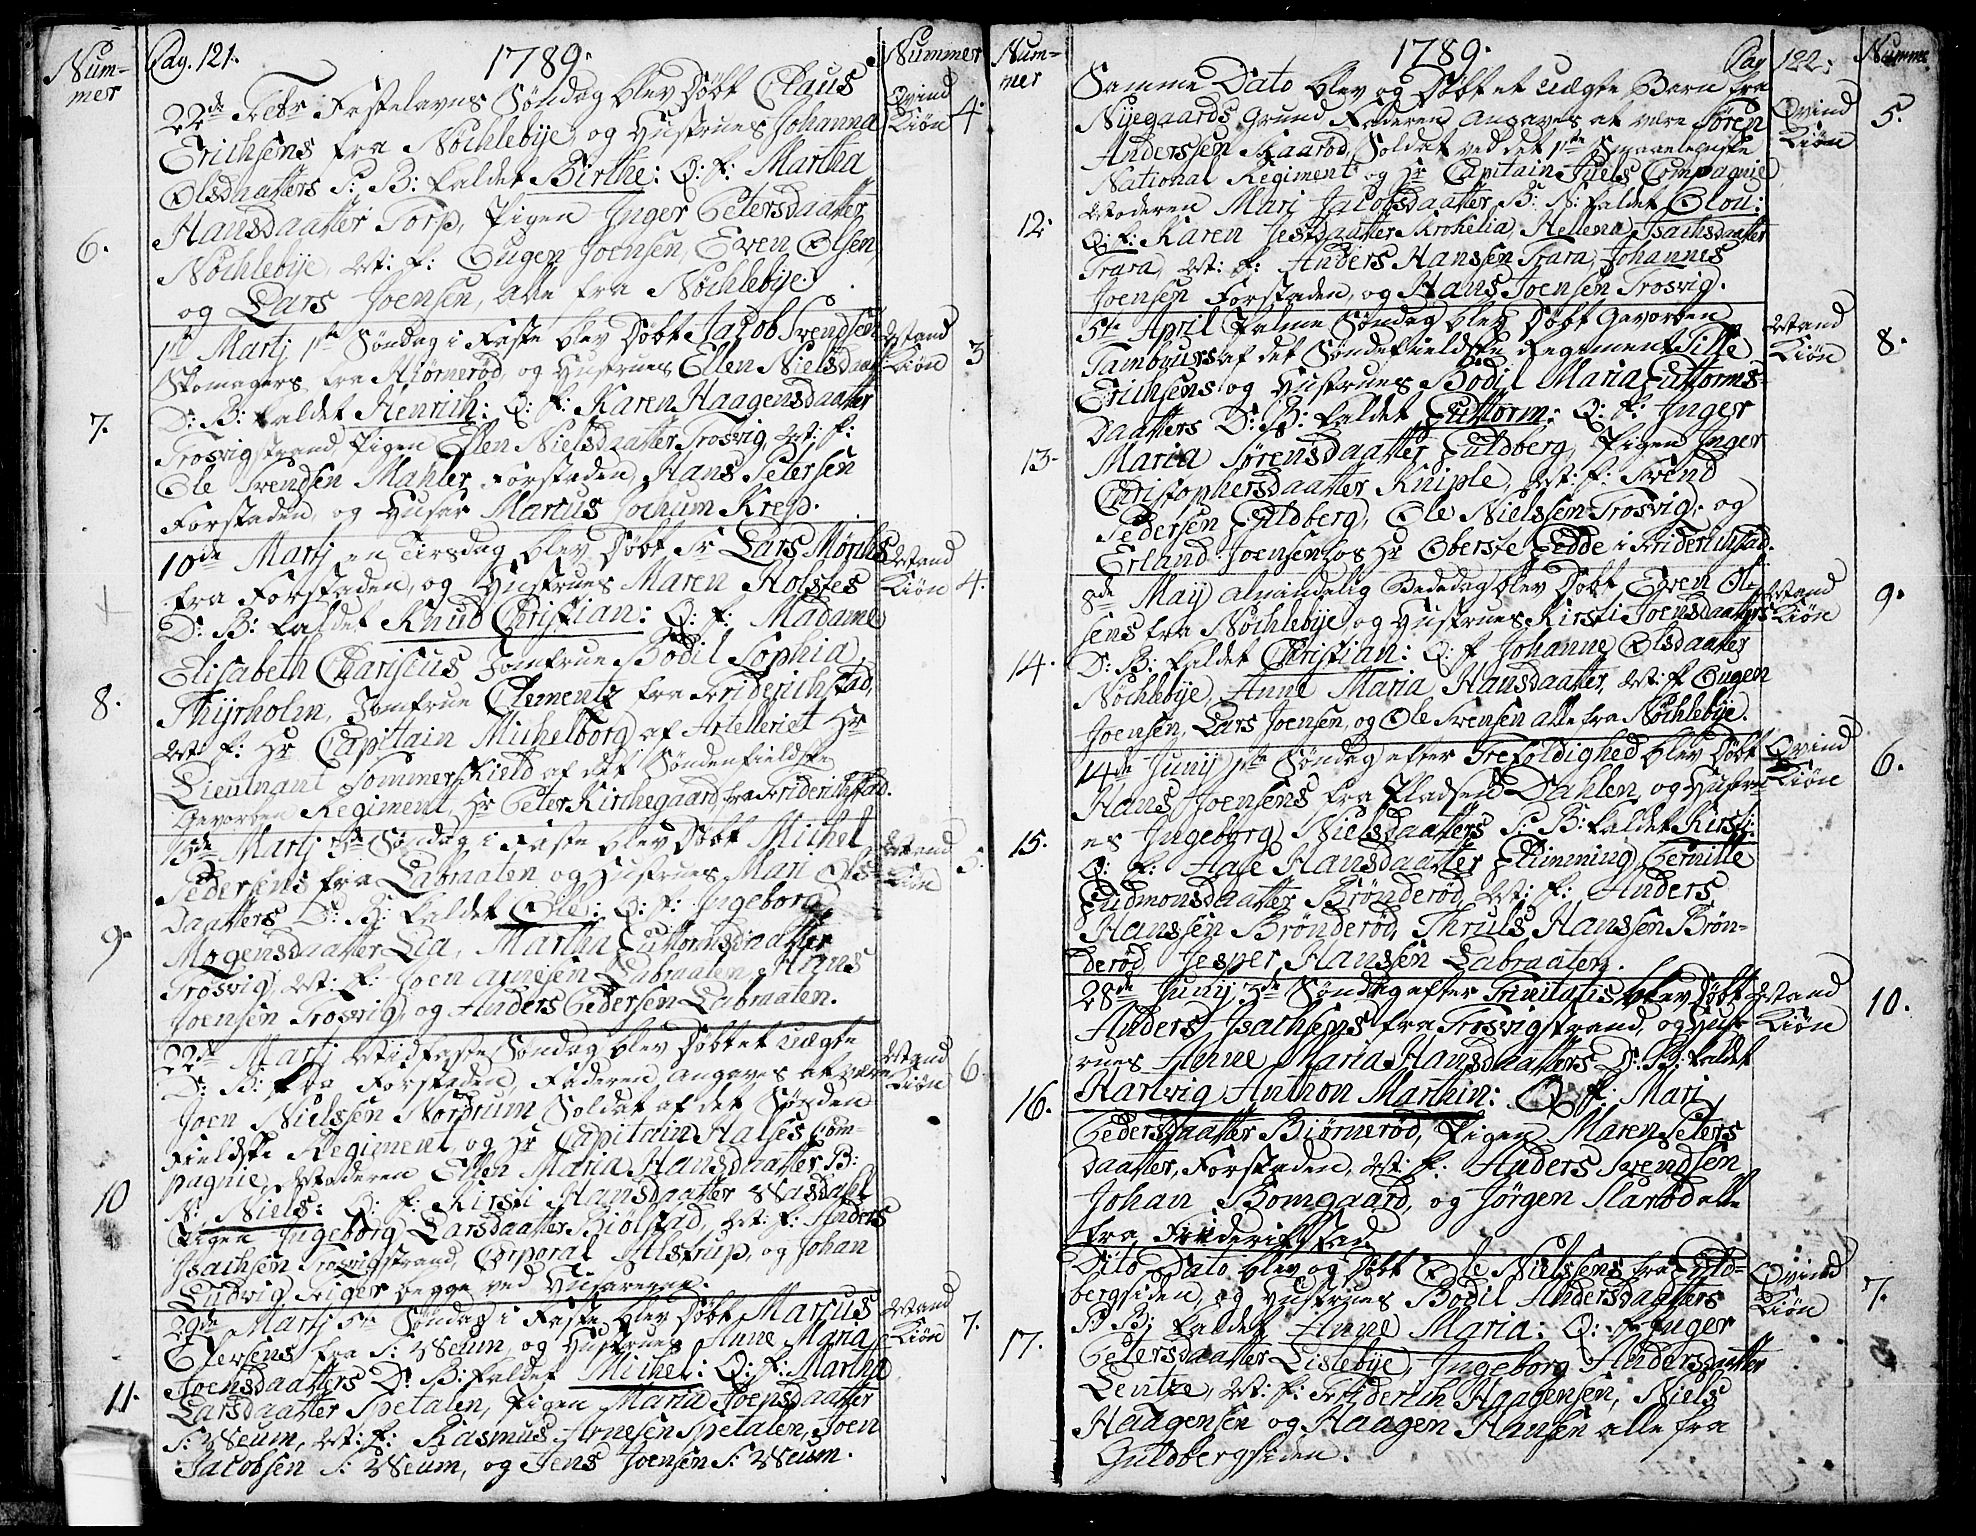 Num-
mer
Pag. 121.
1789.
Nummer
22de Febr Fastelavns Søndag blev Døbt Claus
Erichsens fra Nøchlebye, og Hustrues Johanna
Olsdaatters P: B: kaldet Birthe: Q: f: Martha
Hansdaatter Torp, Pigen Inger Petersdaatter
Nøchlebye, M: f: Eugen Joensen, Even Olsen
og Lars Joensen, alle fra Nøchlebye.
6.
Qvind
Kiøn
4.
1te Martj 1te Søndag i Faste blev Døbt Jacob Svendsen
Skomagers fra Biørnerød, og Hustrues Ellen Nielsdaat
D: B: kaldet Henrich: Q: f: Karen Haagensdaatter
Trosvigstrand, Pigen Ellen Nielsdaatter Trosvig, M: f:
Ole Svendsen Mahler, Forstaden, Hans Petersen
Forstaden, og Husar Marcus Jochum Krep.
7.
Mand
Kiøn
3
10de Martj en Tirsdag blev Døbt Sr Lars Mørchs
fra Forstaden, og Hustrues Maren Holstes
D: B: kaldet Knud Christian: Q: f: Madame
Elisabeth Charisius Jomfrue Bodil Sophia
Thyrholm, Jomfrue Clementz fra Friderichstad,
M: f: Hr Capitain Michelborg af Artelleriet Hr
Lieutnant Sommerskield af det Søndenfieldske
Gevorben Regiment, Hr Peter Kirchegaard fra Friderichstad.
8.
Mand
Kiøn
4.
15de Martj 3de Søndag i Faste blev Døbt Michel
Pedersens fra Labraaten og Hustrues Mari Ols-
daatters D: B: kaldet Ole: Q: f: Ingeborg
Mogensdaatter Lia, Martha Guttormsdaatter
Trosvig, M: f: Joen Arnesen Labraaten, Hans
Joensen Trosvig, og Anders Pedersen Labraaten.
9.
Mand
Kiøn
5.
22de Martj Midfaste Søndag blev Døbt et uægte
D: B: fra Forstaden, Faderen angaves at være
Joen Nielssen Nordrum Soldat af det Sønden
Fieldske Regiment, og Hr Capitain Halses Com-
pagnie, Moderen Ellen Maria Hansdaatter B:
N: Niels: Q: f: Kirsti Hansdaatter Aasdahl
Pigen Ingeborg Larsdaatter Kiølstad, M: f: Anders
Isachsen Trosvigstrand, Corporal Alstrup, og Johan
Ludvig Friger begge ved Husarerne.
10
Mand
Kiøn
6.
29de Martj 5te Søndag i Faste blev Døbt Marcus
Olersens fra S: Weum, og Hustrues Anne Maria
Joensdaatters D: B: kaldet Michel: Q: f: Martha
Larsdaatter Spetalen, Pigen Maria Joensdaatter
S: Weum, M: f: Rasmus Arnesen Spetalen, Joen
Jacobsen S: Weum, og Jens Joensen S: Weum.
11.
Mand
Kiøn
7.
Num-
mer
1789.
Pag 122.
Numme
Samme Dato blev og Døbt et uægte Barn fra
Nyegaards Grund Faderen angaves at være Søren
Anderssen Skaarød, Soldat ved det 1ste Smaalenske
National Regiment og Hr Capitain Juels Compagnie
Moderen Mari Jacobsdaatter, B: N: kaldet Olou:
Q: f: Karen Jestdaatter Krohelia, Helena Isachsdaatter
Trara, M: f: Anders Hansen Trara, Johannes
Joensen Forstaden, og Hans Joensen Trosvig.
12
Qvind
Kiøn
5.
5te April Palme Søndag blev Døbt Gevorben
Tambours af det Søndefieldske Regiment Tille
Erichsens og Hustrues Bodil Maria Guttorms-
daatters D: B: kaldet Guttorm: Q: f: Inger
Maria Sørensdaatter Guldberg, Pigen Inger
Christophersdaatter Kniple, M: f: Svend
Pedersen Guldberg, Ole Nielssen Trosvig, og
Erland Joensen hos Hr Oberste Gedde i Friderichstad.
13.
Mand
Kiøn
8.
8de May almindelig Bededag blev Døbt Even Ol-
sens fra Nøchlebye og Hustrues Kirsti Joensdaatters
D: B: kaldet Christian: Q: f: Johanne Olsdaatter
Nøchlebye, Anne Maria Hansdaatter, M: f: Eugen
Joensen, Lars Joensen, og Ole Svensen alle fra Nøchlebye.
14.
Mand
Kiøn
9.
14de Junij 1te Søndag efter Trefoldighed blev Døbt
Hans Joensens fra Pladsen Dahlen, og Hustru-
es Ingeborg Nielsdaatters P: B: kaldet Kirsti:
Q: f: Hase Hansdaatter Glimming, Pernille
Gudmonsdaatter Brønderød, M: f: Anders
Hanssen Brønderød, Thruls Hanssen Brøn-
derød, Jesper Hanssen Labraaten.
15.
Qvind
Kiøn
6.
28de Junij 3de Søndag efter Trinitatis blev Døbt
Anders Isachsens fra Trosvigstrand, og Hust-
rues Anne Maria Hansdaatters D: B: kaldet
Hartvig Anthon Marthin: Q: f: Mari
Pedersdaatter Biørnerød, Pigen Maren Peters
daatter, Forstaden, M: f: Anders Svendsen
Johan Bomgaard, og Jørgen Slarbo alle
fra Friderichstad
16.
Mand
Kiøn
10.
Dito Dato blev og Døbt Ole Nielssens fra Guld-
bergsiden, og Hustrues Bodil Andersdaatters
P B: kaldet Anne Maria: Q: f: Inger
Petersdaatter Lislebye, Ingeborg Andersdaatter
Lentze, M: f: Friderich Haagensen, Niels
Haagensen og Haagen Hansen alle fra
Guldbergsiden.
17.
Qvind
Kiøn
7.